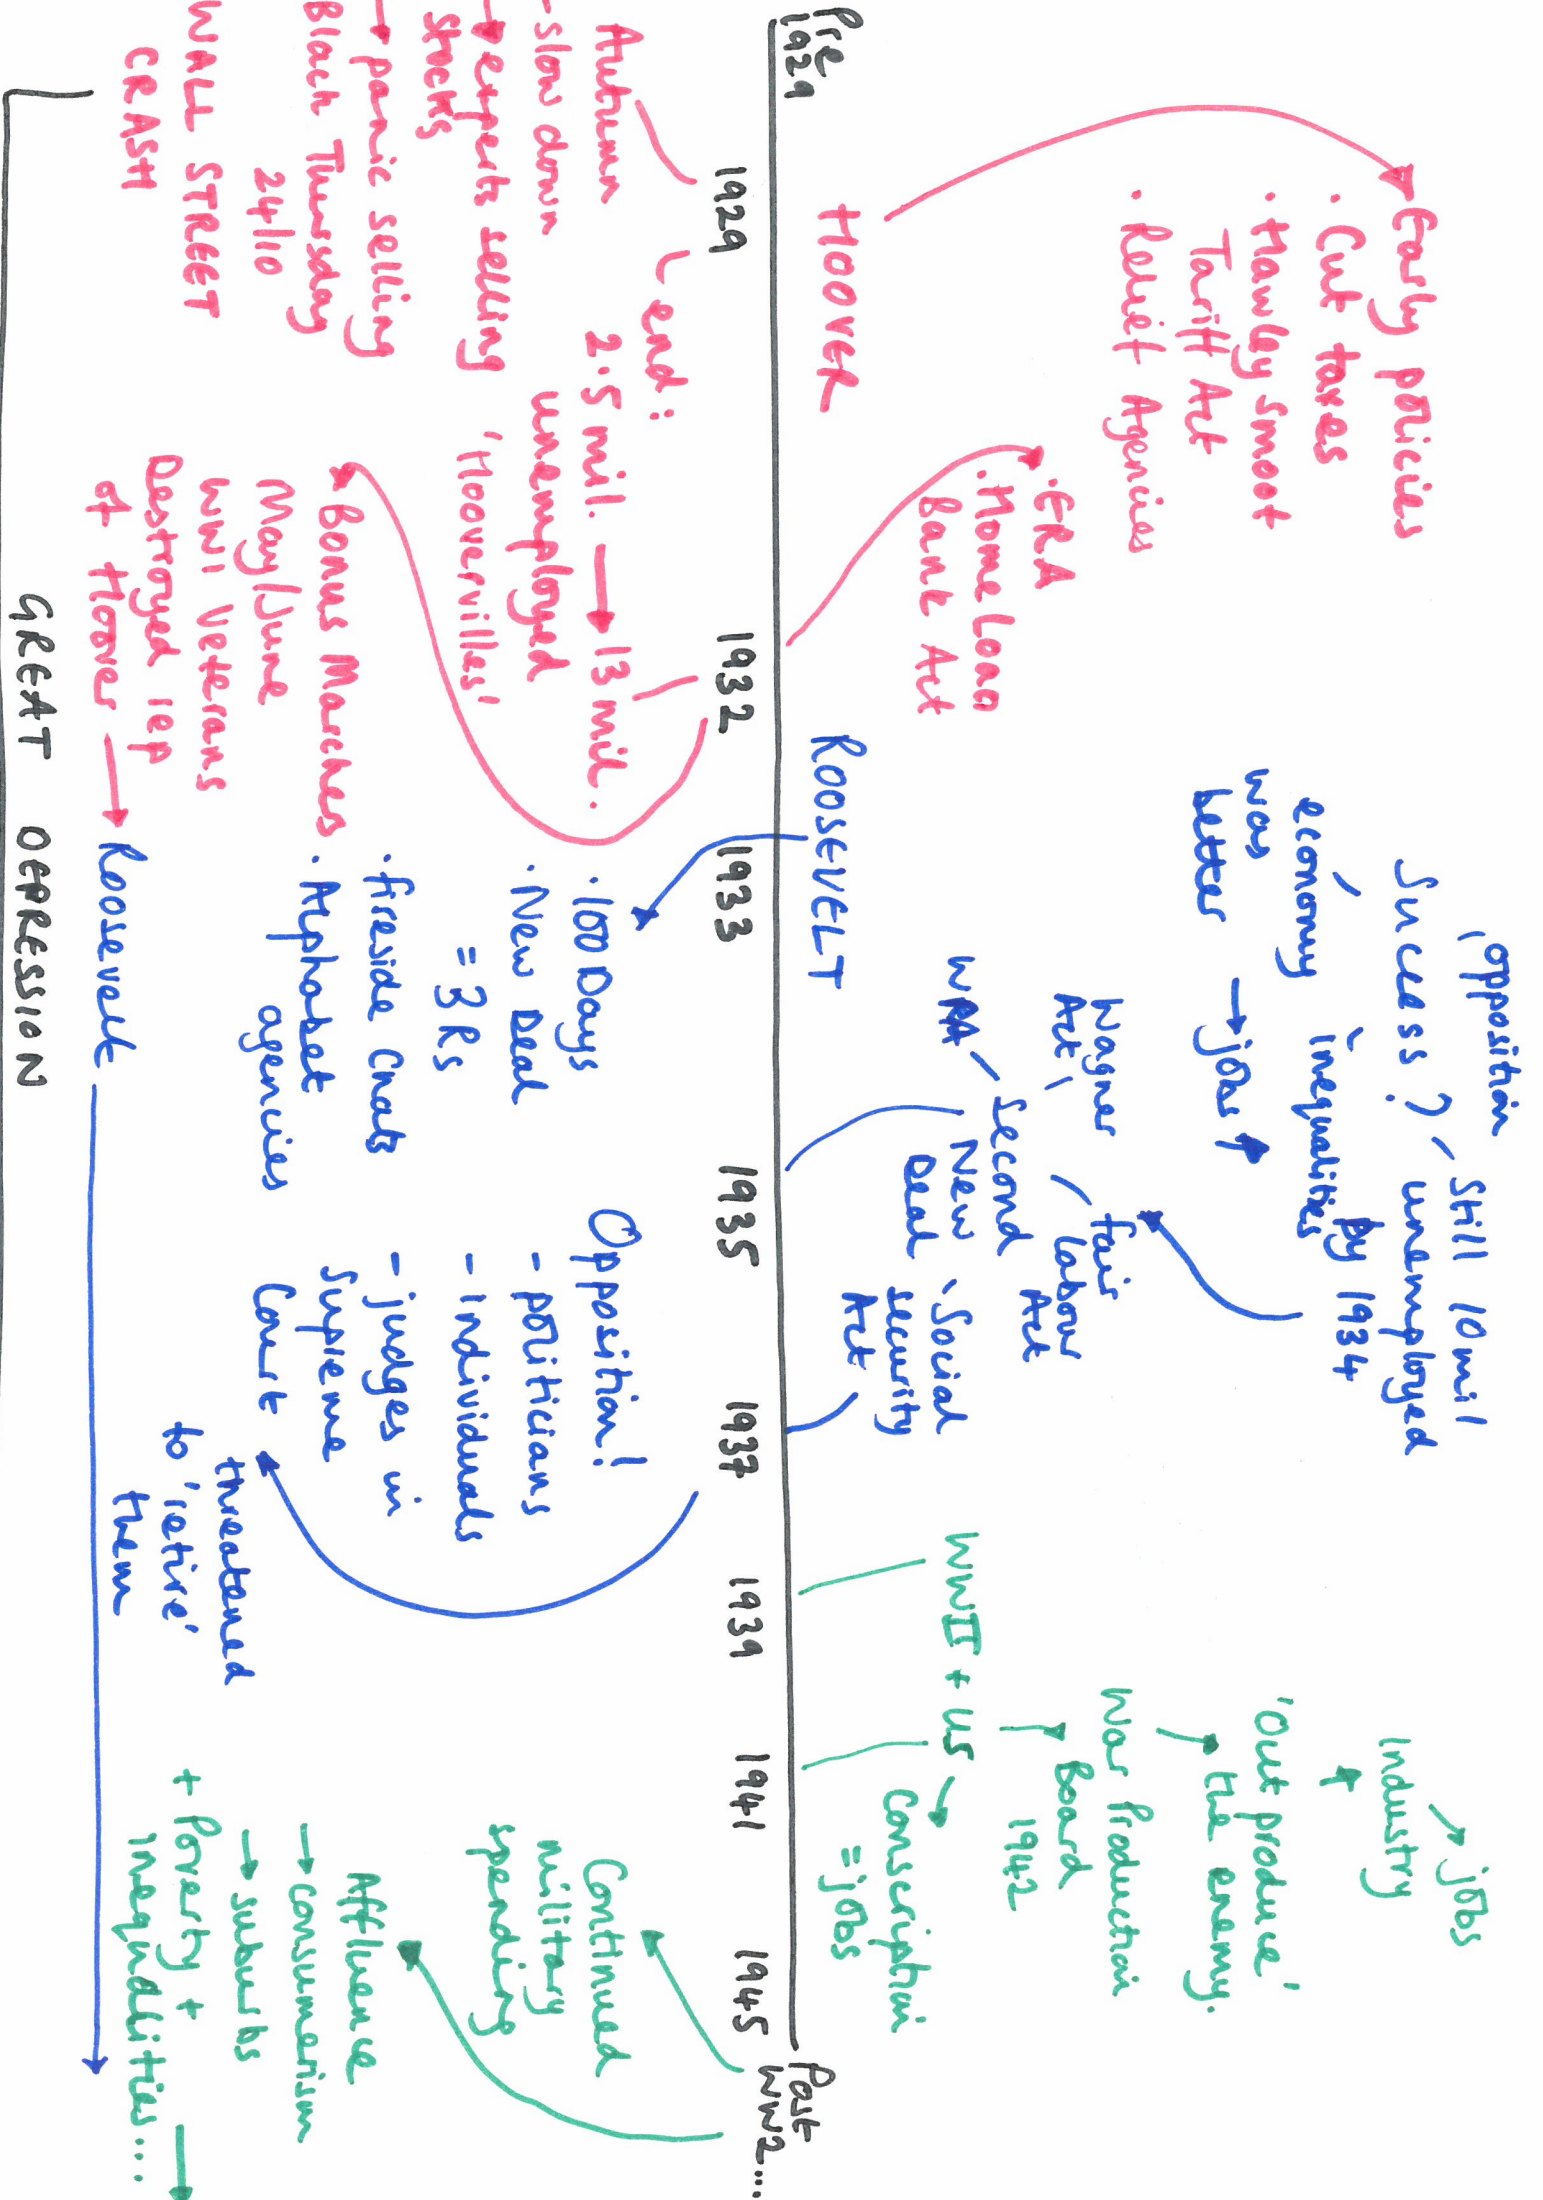 Early policies
· Cut taxes
· Hawley Smoot
Tariff Act
· Relief Agencies
· ERA
· Home Loan
Bank Act
HOOVER
opposition
Success? - Still 10 mil
unemployed
by 1934
economy
was
better
inequalities
→ jobs ↑
Wagner
Act
WPA
Second
New
Deal
Fair
Labour
Act
Social
Security
Act
ROOSEVELT
jobs
Industry
'Out produce'
the enemy.
War Production
Board
1942
WWII + US
Conscription
= jobs
Pre
1929
1929
1932
1933
1935
1937
1939
1941
1945
Post
WW2...
Autumn
- slow down
→ experts selling
stocks
→ panic selling
Black Thursday
24/10
WALL STREET
CRASH
end:
2.5 mil. → 13 mil.
unemployed
'Hoovervilles'
Bonus Marches
May/June
WW1 veterans
Destroyed rep
of Hoover → Roosevelt
· 100 Days
· New Deal
= 3 Rs
· fireside Chats
· Alphabet
agencies
Opposition!
- politicians
- individuals
- judges in
Supreme
Court
threatened
to 'retire'
them
Continued
military
spending
Affluence
→ consumerism
→ suburbs
+ Poverty +
inequalities.... →
GREAT DEPRESSION